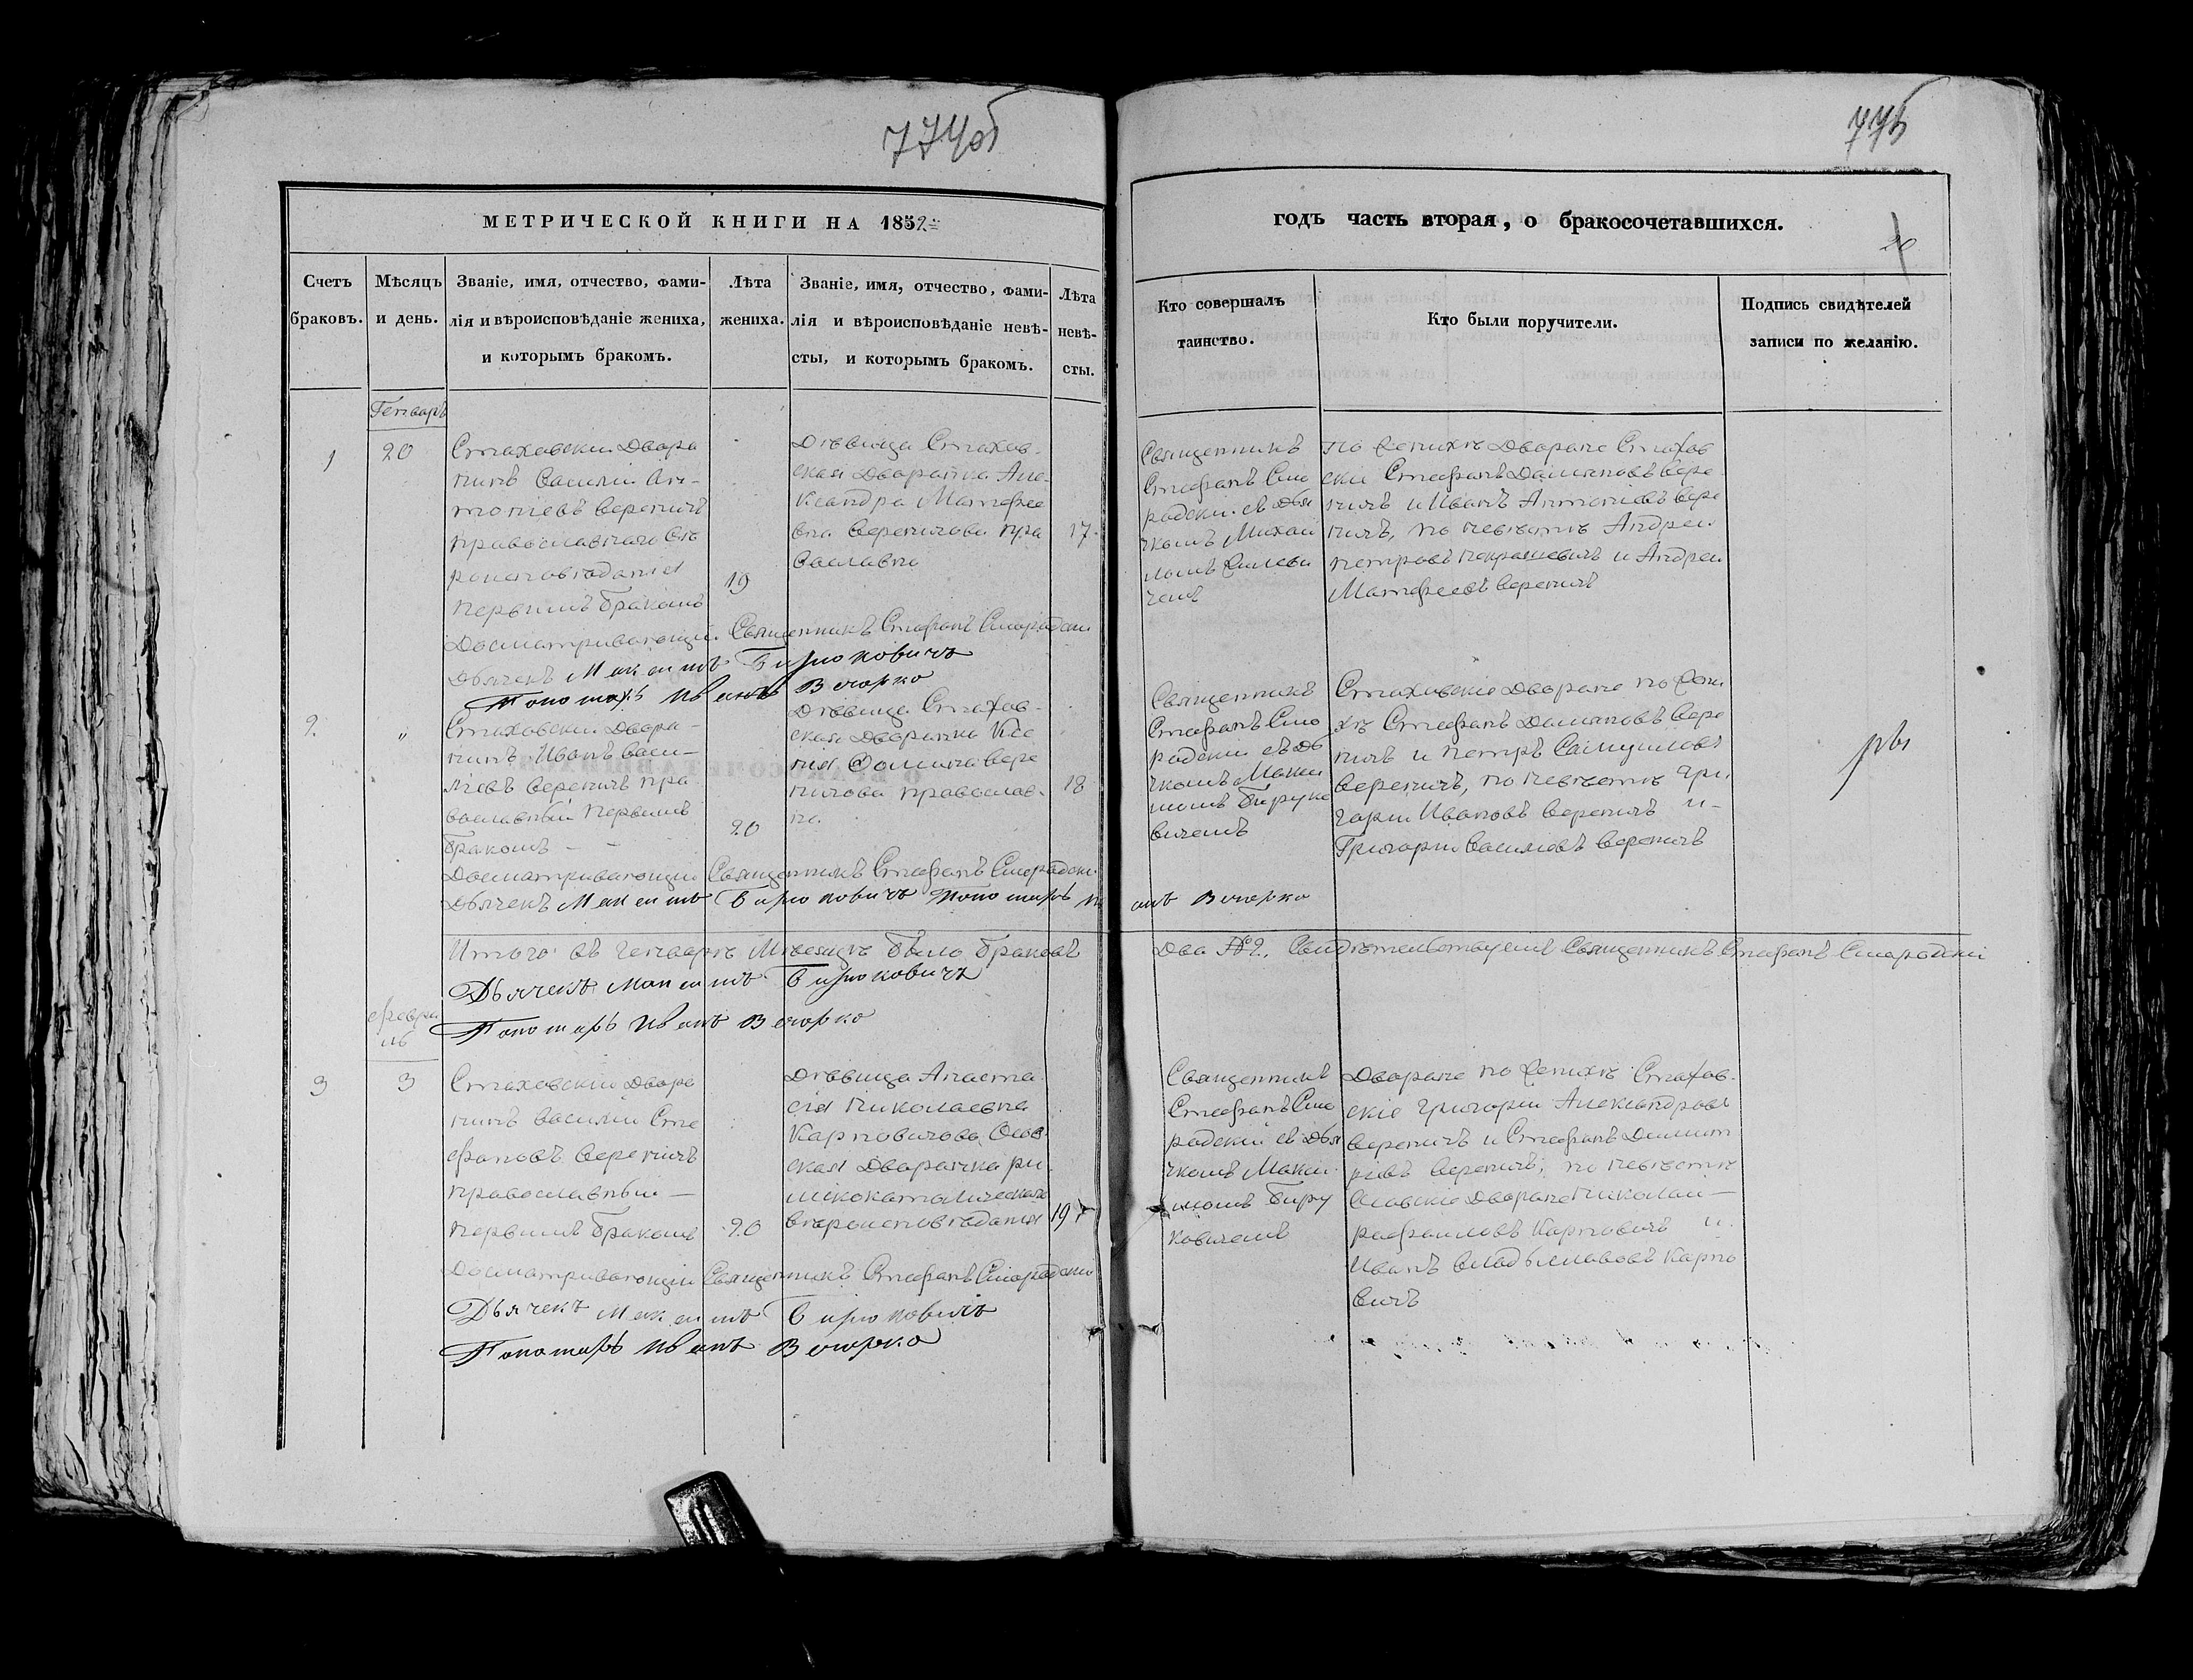 774об
775
МЕТРИЧЕСКОЙ КНИГИ НА 1852
годъ часть вторая, о бракосочетавшихся.
20
Счетъ
браковъ.
Мѣсяцъ
и день.
Званіе, имя, отчество, фами-
лія и вѣроисповѣданіе жениха,
и которымъ бракомъ.
Лѣта
жениха.
Званіе, имя, отчество, фами-
лія и вѣроисповѣданіе невѣ-
сты, и которымъ бракомъ.
Лѣта
невѣ-
сты.
Кто совершалъ
таинство.
Кто были поручители.
Подпись свидѣтелей
записи по желанію.
Генварь
1
20
Стаховски Дворя
нинъ Василій Ан-
тоніевъ Вереничъ
православнаго вѣ
роисповѣданія
первымъ бракомъ
19
Дѣвица Стахов-
ская Дворянка Але
ксандра Матфее
вна Вереничова пра
вославна
17
Священникъ
Стефанъ Смо
родски съ Дья
чкомъ Михаи
ломъ
чемъ
по жениху Дворяне Стахов
ски Стефанъ Даміановъ Вере
ничъ и Иванъ Антоніевъ Вере
ничъ, по невѣсте Андреи
Петровъ Пекрашевичъ и Андреи
Матфеевъ Вереничъ
Досматривающіи Священникъ Стефанъ Смородски
Дьячекъ Максимъ Бирюковичъ
Пономарь Иванъ Вечорко
2
"
Стаховски Дворя-
нинъ Иванъ Васи-
ліевъ Вереничъ пра
вославный первымъ
бракомъ - -
20
Дѣвица Стахов-
ская Дворянка Ксе
нія Фомина Вере
ничова православ-
на
18
Священникъ
Стефанъ Смо
родски съ Дья
чкомъ Макси
момъ Бирукo
вичемъ
Стаховскіе Дворяне по жени
хѣ Стефанъ Даміановъ Вере
ничъ и Петръ Самуиловъ
Вереничъ, по невѣсте Гри
горіи Ивановъ Вереничъ и-
Григоріи Василіевъ Вереничъ
Досматривающіи Священникъ Стефанъ Смородски
Дьячекъ Максимъ Бирюковичъ Пономарь Иванъ Вечорко
Итого въ Генварѣ Мѣсяцѣ было браковъ Два № 2. Свидѣтельствуемъ Священникъ Стефанъ Смородскіи
Дьячекъ Максимъ Бирюковичъ
Пономарь Иванъ Вечорко
Февра
ль
3
3
Стаховскіи Дворя
нинъ Василіи Сте
фановъ Вереничъ
православный -
первымъ бракомъ
20
Дѣвица Анаста
сія Николаевна
Карповичова Осов-
ская Дворянка ри
мскокатолическаго
вѣроисповѣданія
19
Священникъ
Стефанъ Смо
родскіи съ Дья
чкомъ Макси
момъ Биру
ковичемъ
Дворяне по женихѣ Стахов-
скіе Григоріи Александровъ
Вереничъ и Стефанъ Димит
ріевъ Вереничъ, по невѣсте
Осовскіе Дворяне Николаи -
Рафаиловъ Карповичъ и
Иванъ Владыславовъ Карпо
вичъ
Досматривающіи Священникъ Стефанъ Смородски
Дьячекъ Максимъ Бирюковичъ
Пономарь Иванъ Вечорко